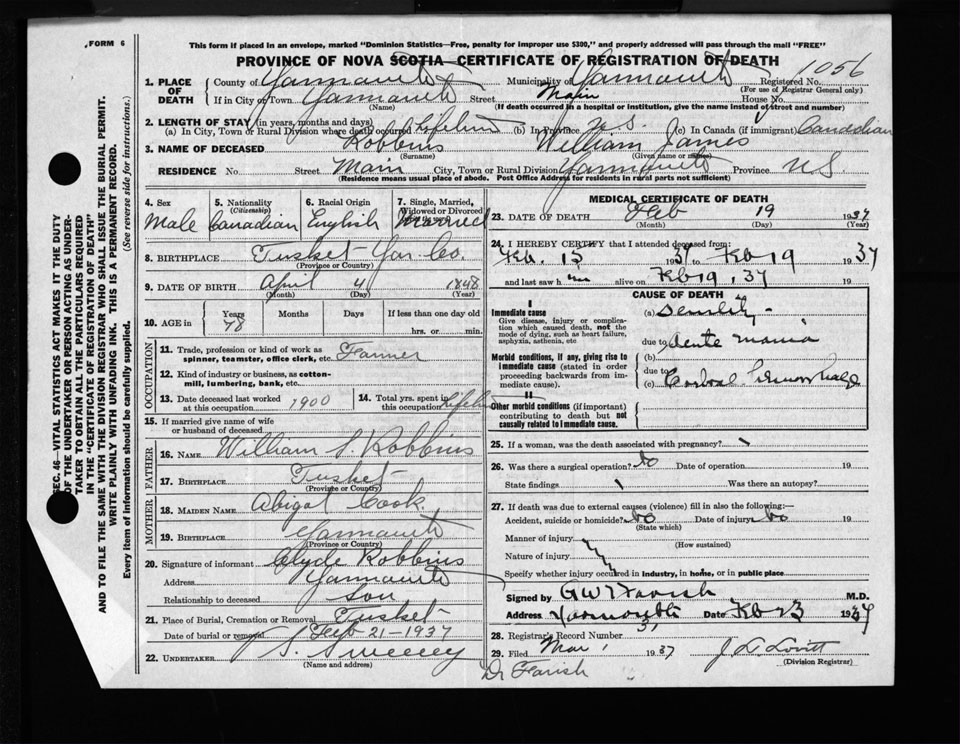 FORM 6
This form if placed in an envelope, marked "Dominion Statistics—Free, penalty for improper use $300," and properly addressed will pass through the mail "FREE"
PROVINCE OF NOVA SCOTIA—CERTIFICATE OF REGISTRATION OF DEATH
1056
1. PLACE OF DEATH County of Yarmouth Municipality of Yarmouth Registered No.
(For use of Registrar General only)
If in City or Town Yarmouth Street Main House No.
(Name) (If death occurred in a hospital or institution, give the name instead of street and number)
2. LENGTH OF STAY (in years, months and days)
(a) In City, Town or Rural Division where death occurred Lifetime (b) In Province N.S. (c) In Canada (if immigrant) Canadian
3. NAME OF DECEASED Robbins William James
(Surname) (Given name or names)
RESIDENCE No. Street Main City, Town or Rural Division Yarmouth Province N.S.
(Residence means usual place of abode. Post Office Address for residents in rural parts not sufficient)
4. Sex 5. Nationality (Citizenship) 6. Racial Origin 7. Single, Married, Widowed or Divorced
Male Canadian English Married
8. BIRTHPLACE Tusket Yar. Co.
(Province or Country)
9. DATE OF BIRTH April 4 1848
(Month) (Day) (Year)
10. AGE in Years Months Days If less than one day old
78 hrs. or min.
OCCUPATION
11. Trade, profession or kind of work as spinner, teamster, office clerk, etc. Farmer
12. Kind of industry or business, as cotton-mill, lumbering, bank, etc.
13. Date deceased last worked at this occupation 1900 14. Total yrs. spent in this occupation Lifetime
15. If married give name of wife or husband of deceased
FATHER
16. NAME William S. Robbins
17. BIRTHPLACE Tusket
(Province or Country)
MOTHER
18. MAIDEN NAME Abigal Cook
19. BIRTHPLACE Yarmouth
(Province or Country)
20. Signature of informant Clyde Robbins
Address Yarmouth
Relationship to deceased Son
21. Place of Burial, Cremation or Removal Tusket
Date of burial or removal Feb 21-1937
22. UNDERTAKER Sweeney
(Name and address)
MEDICAL CERTIFICATE OF DEATH
23. DATE OF DEATH Feb 19 1937
(Month) (Day) (Year)
24. I HEREBY CERTIFY that I attended deceased from:
Feb. 15 1937 to Feb 19 1937
and last saw him alive on Feb 19, 37
CAUSE OF DEATH
I
Immediate cause
Give disease, injury or complication which caused death, not the mode of dying, such as heart failure, asphyxia, asthenia, etc
(a) Senility
due to Acute mania
Morbid conditions, if any, giving rise to immediate cause (stated in order proceeding backwards from immediate cause).
(b)
due to
(c)
II
Other morbid conditions (if important) contributing to death but not causally related to immediate cause.
25. If a woman, was the death associated with pregnancy?
26. Was there a surgical operation? No Date of operation 19
State findings Was there an autopsy?
27. If death was due to external causes (violence) fill in also the following:
Accident, suicide or homicide? No Date of injury No 19
(State which)
Manner of injury
(How sustained)
Nature of injury
Specify whether injury occurred in industry, in home, or in public place
Signed by G W T Farish M.D.
Address Yarmouth Date Feb 23 1937
28. Registrar's Record Number 31
29. Filed Mar 1 1937 J. L. Lovitt
(Division Registrar)
Dr Farish
SEC. 46—VITAL STATISTICS ACT MAKES IT THE DUTY
OF THE UNDERTAKER OR PERSON ACTING AS UNDER-
TAKER TO OBTAIN ALL THE PARTICULARS REQUIRED
IN THE "CERTIFICATE OF REGISTRATION OF DEATH"
AND TO FILE THE SAME WITH THE DIVISION REGISTRAR WHO SHALL ISSUE THE BURIAL PERMIT.
WRITE PLAINLY WITH UNFADING INK. THIS IS A PERMANENT RECORD.
Every item of information should be carefully supplied. (See reverse side for instruction.)